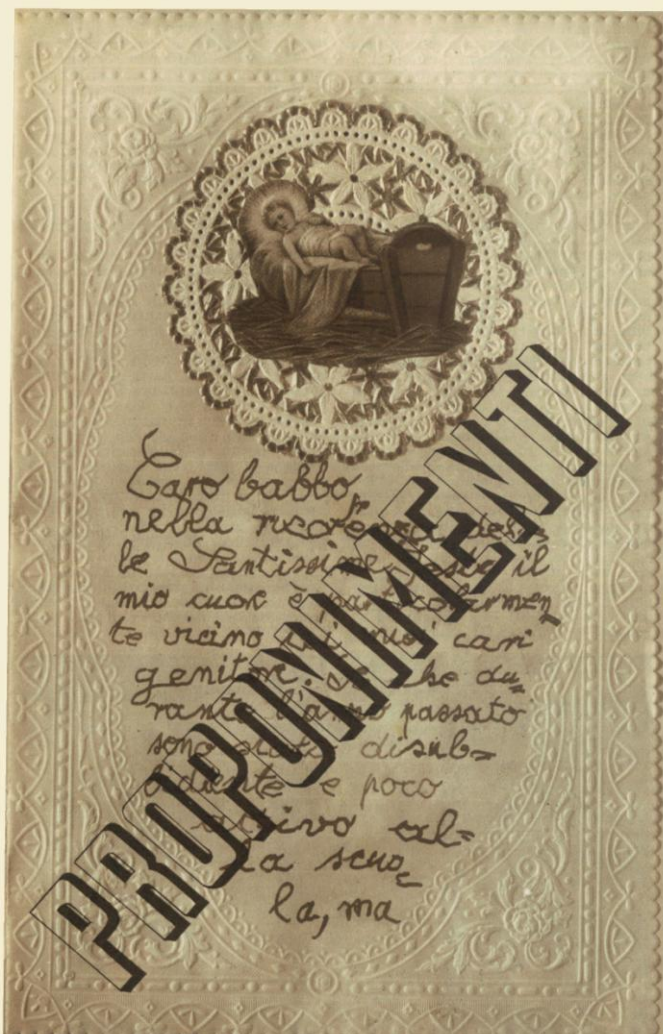 Caro babbo,
nella ricorrenza del=
le Santissime Feste il
mio cuor è particolarmen=
te vicino ai miei cari
genitori. So che du=
rante l'anno passato
sono stato disub=
bidiente e poco
attivo al=
la scuo=
la, ma
PROPONIMENTI